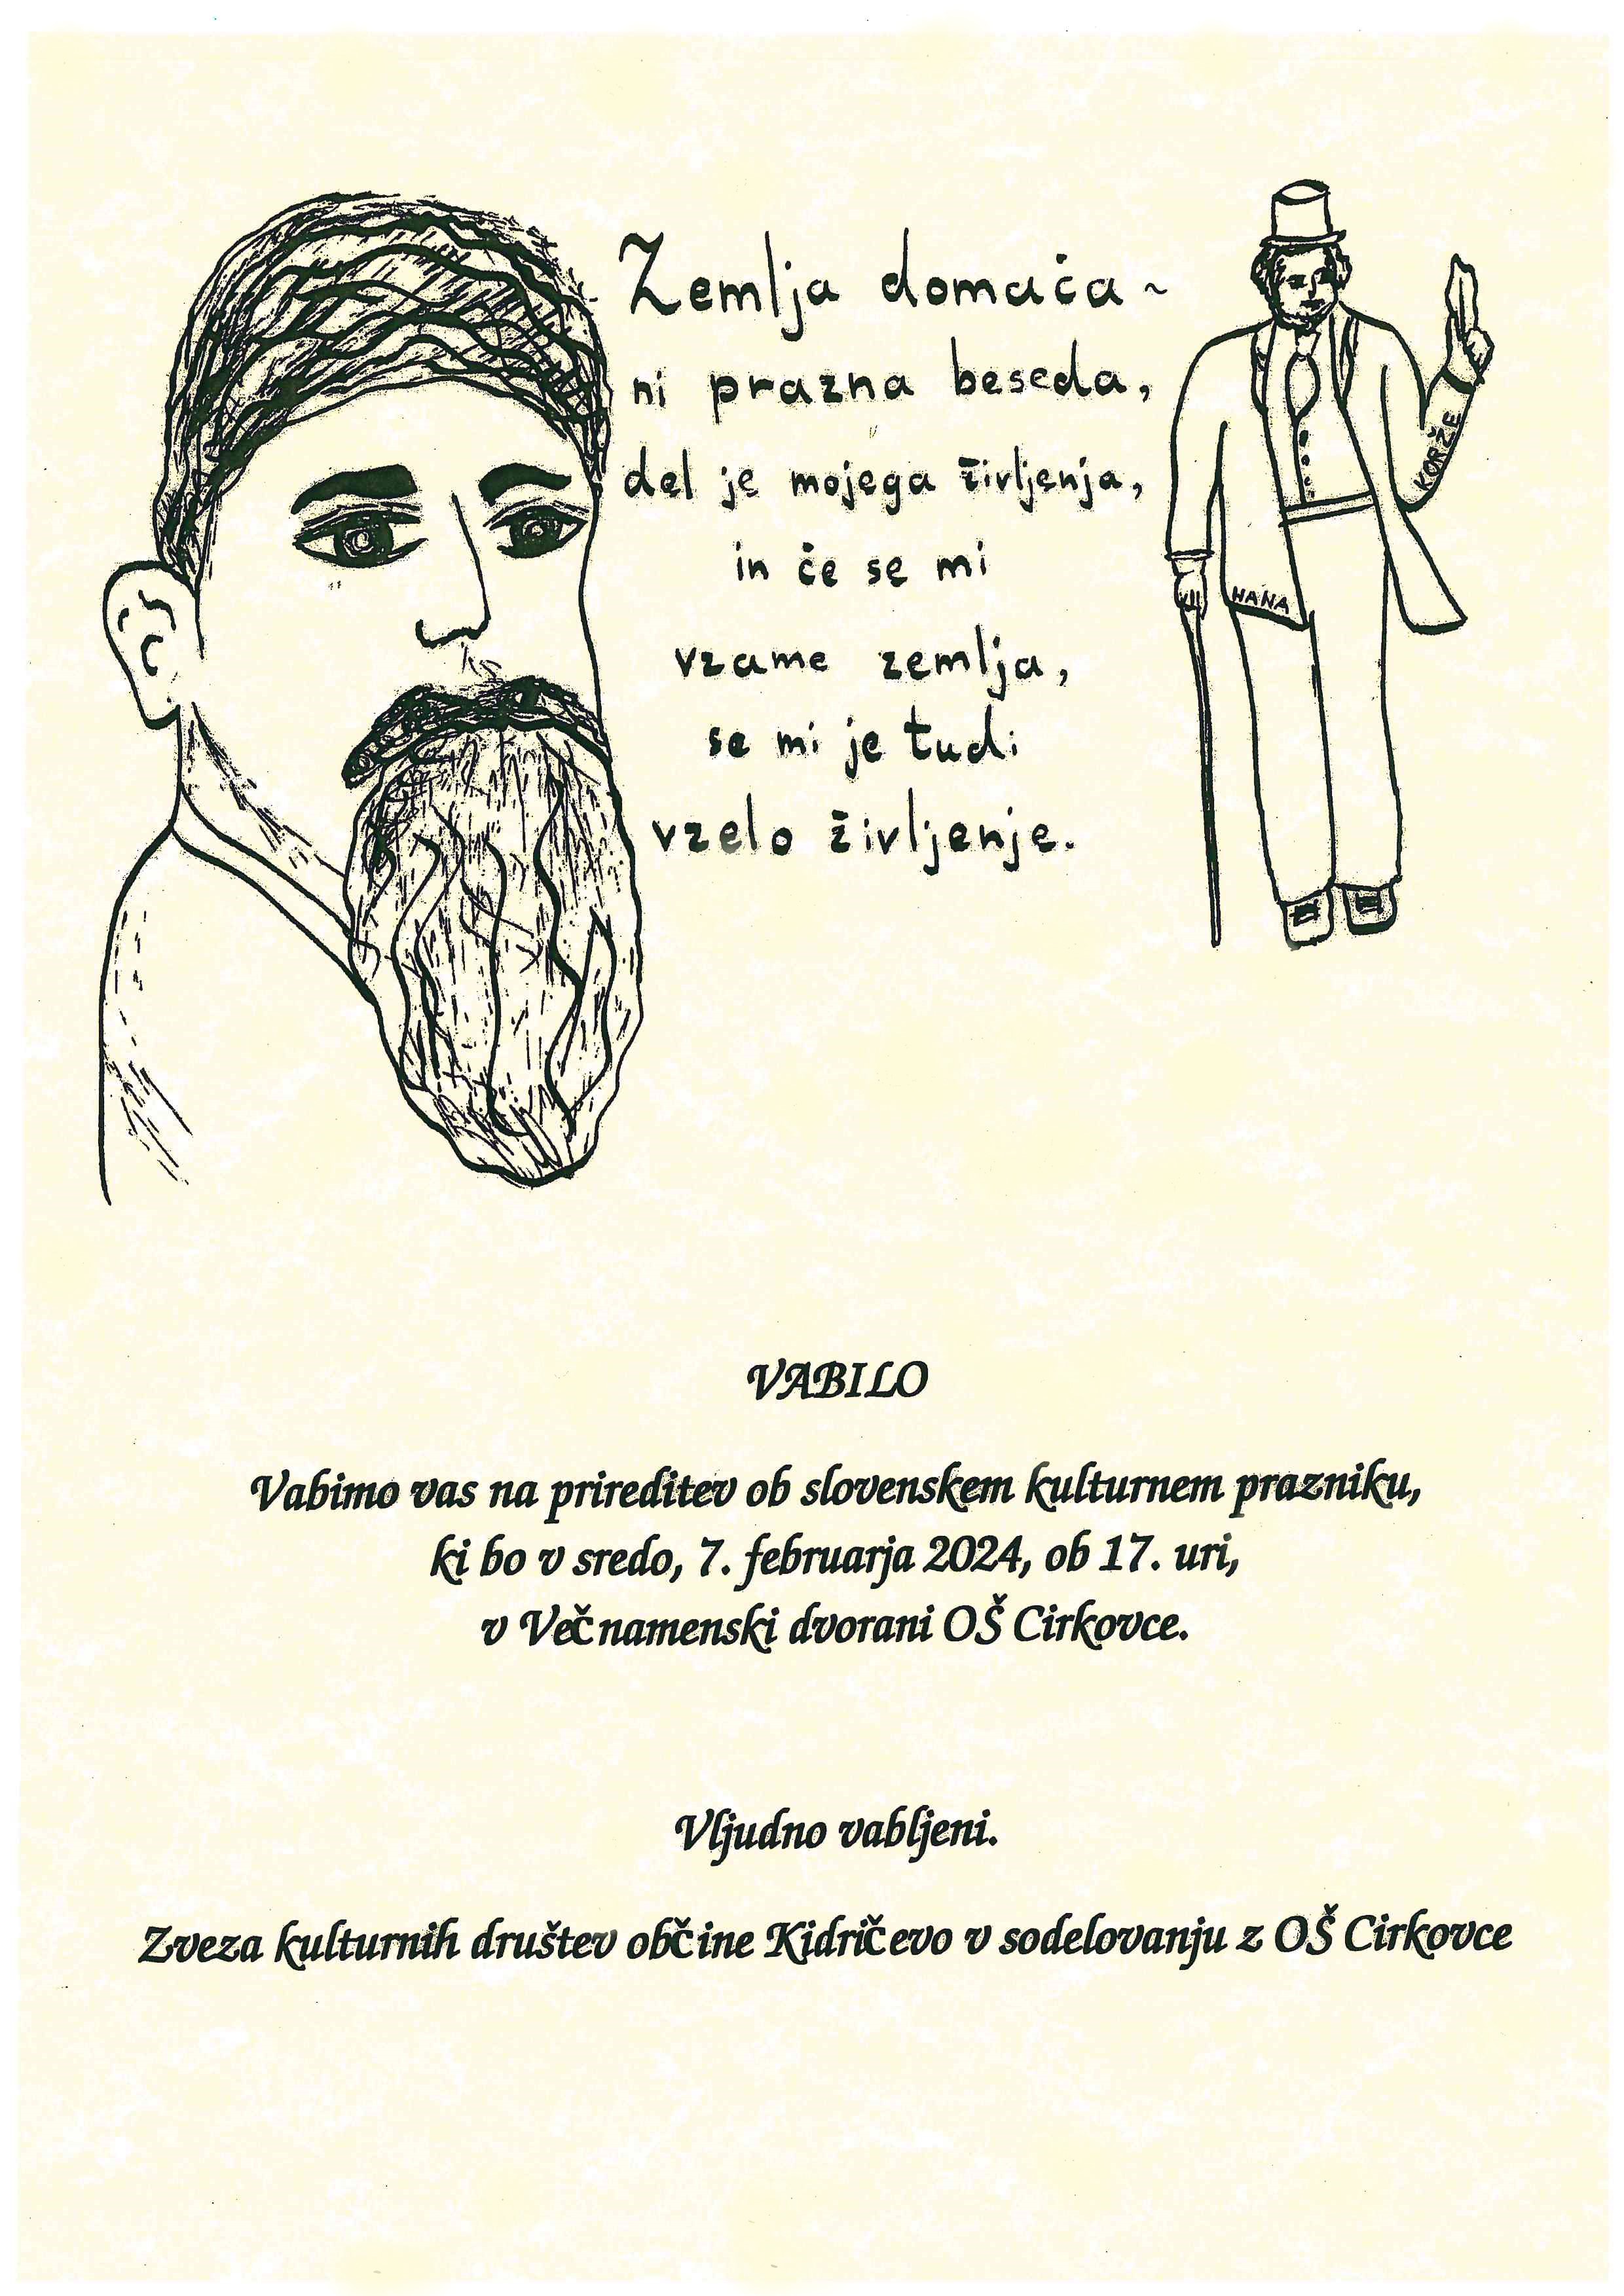 Zemlja domača ~
ni prazna beseda,
del je mojega življenja,
in če se mi
vzame zemlja,
se mi je tudi
vzelo življenje.
KORŽE
HANA
VABILO
Vabimo vas na prireditev ob slovenskem kulturnem prazniku,
ki bo v sredo, 7. februarja 2024, ob 17. uri,
v Večnamenski dvorani OŠ Cirkovce.
Vljudno vabljeni.
Zveza kulturnih društev občine Kidričevo v sodelovanju z OŠ Cirkovce